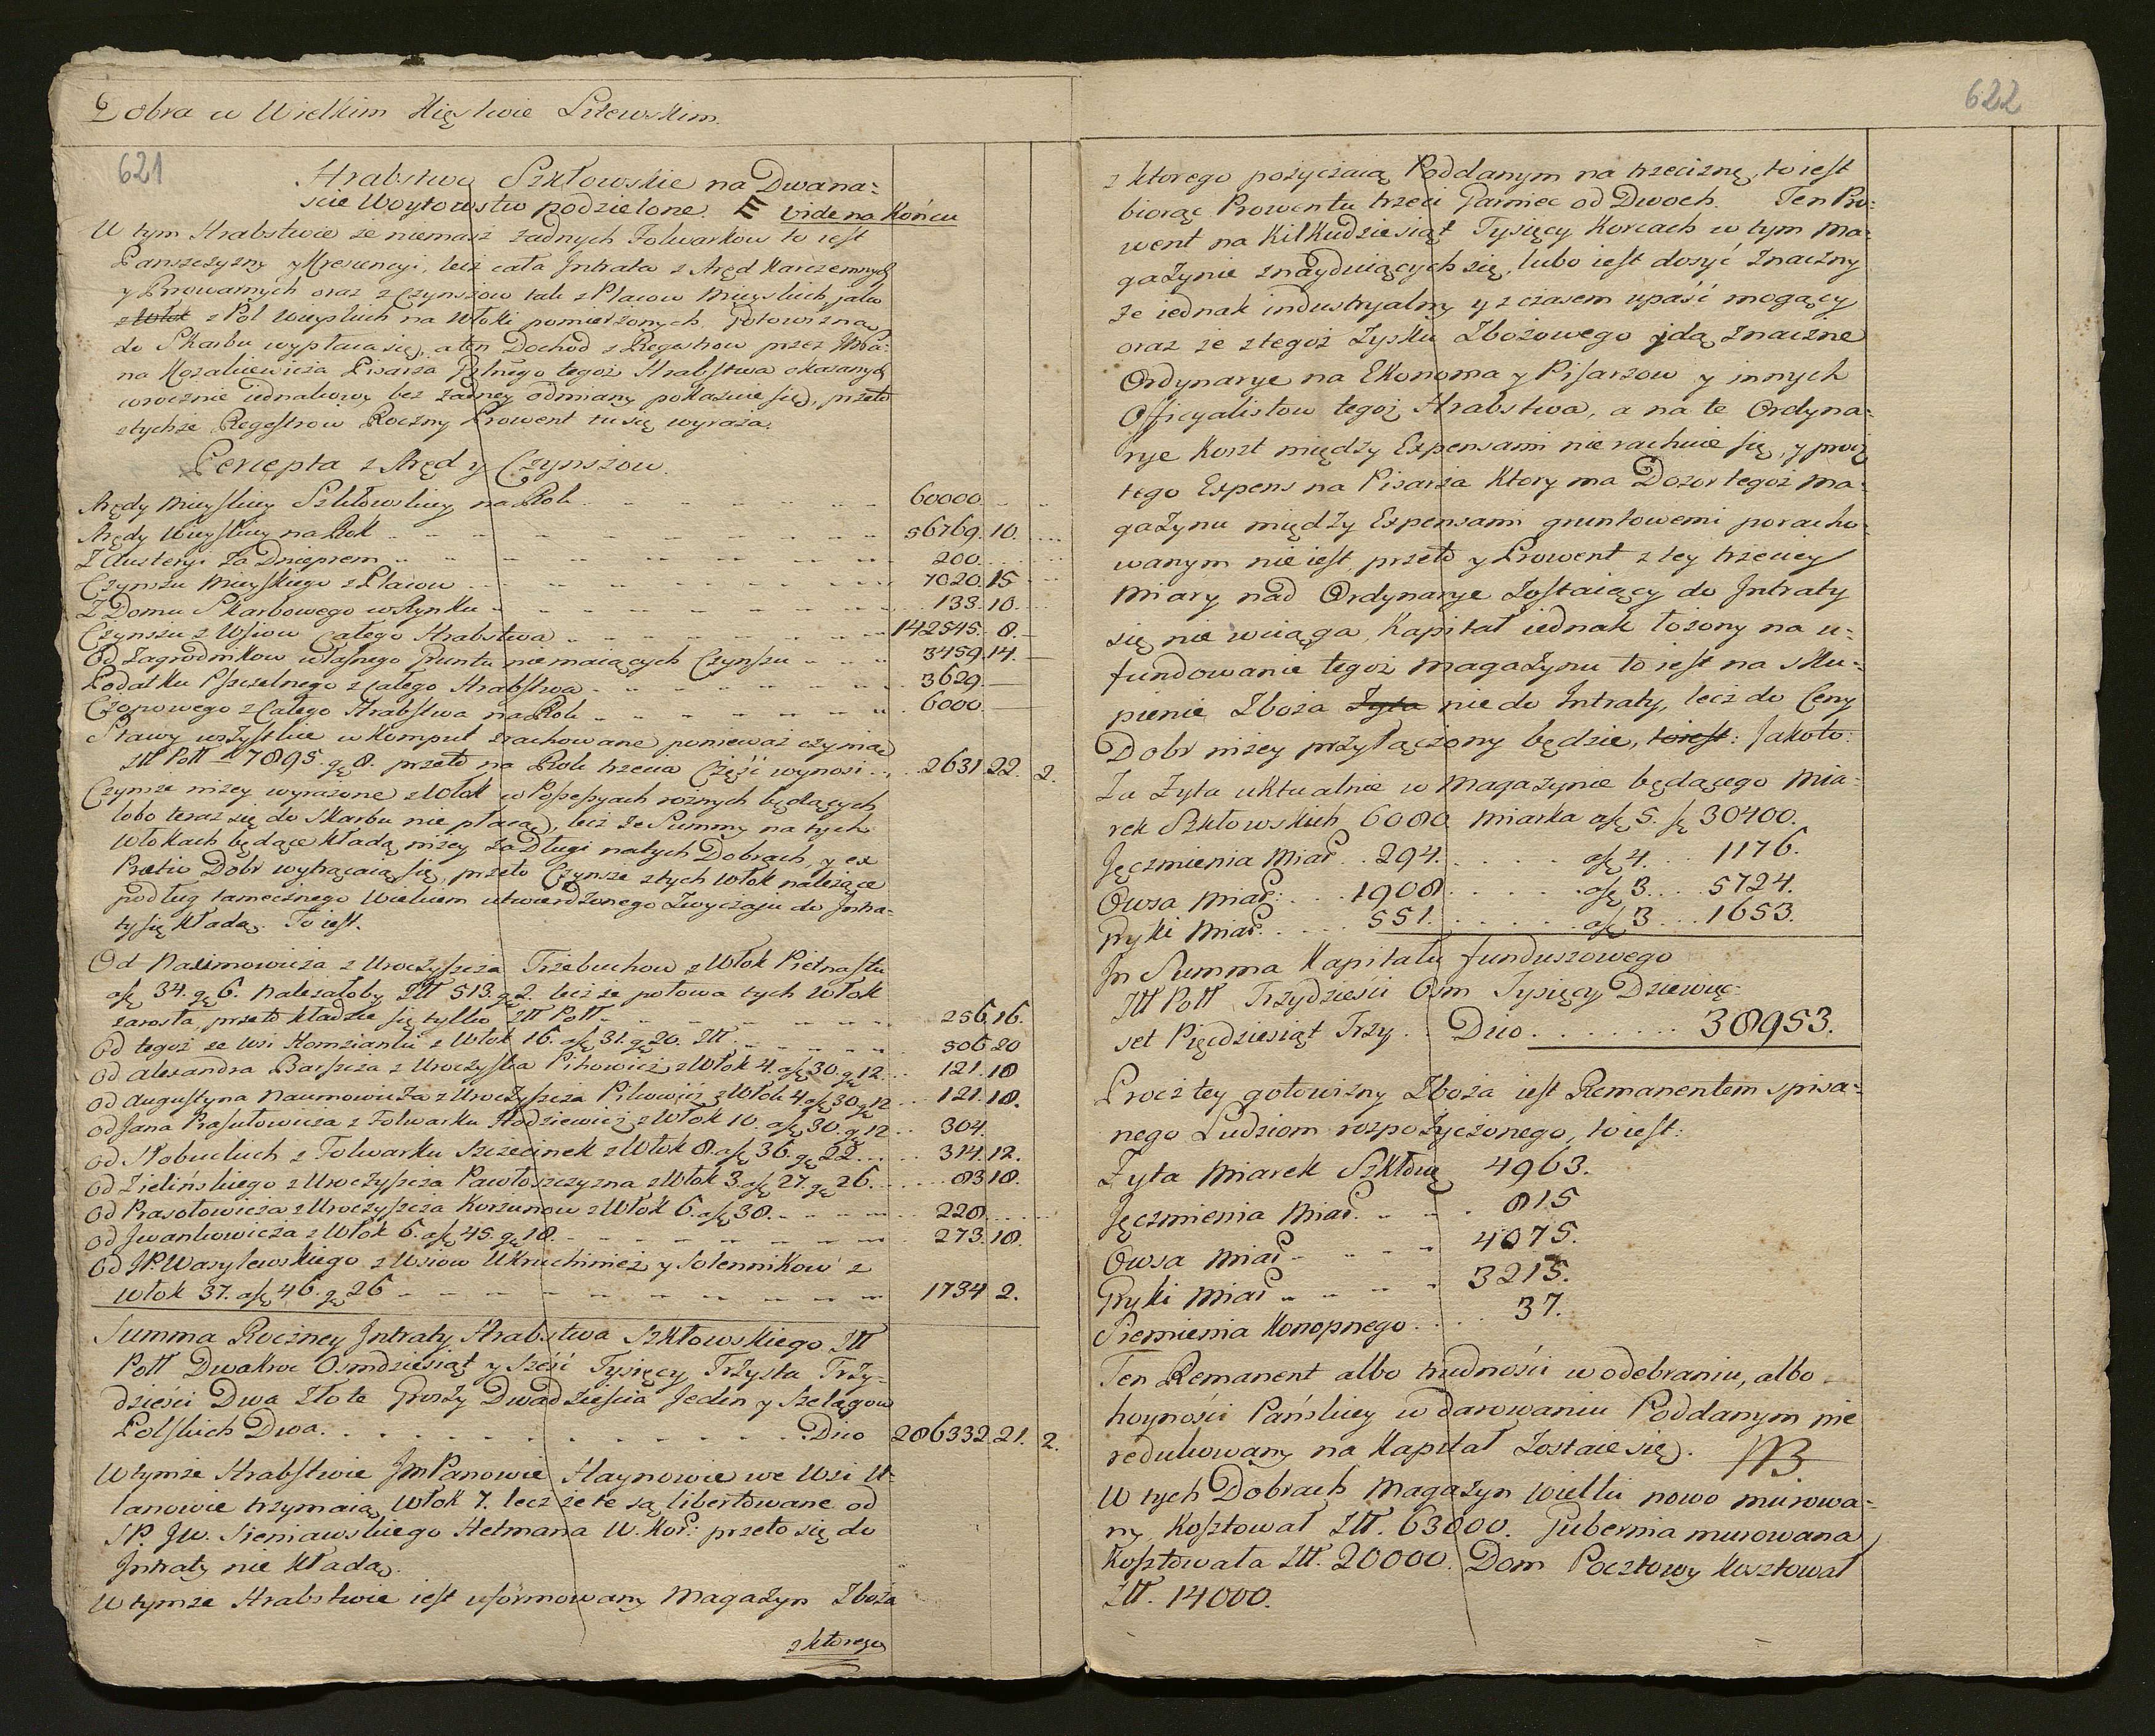 Dobra w Wielkim Xięstwie Litewskim.
621
Hrabstwo Szkłowskie na Dwana=
ście Woytowstw podzielone. E vide na Końcu
W tym Hrabstwie że niemasz żadnych Folwarkow to iest
Panszczyzny y Krescencyi, lecz cała Intrata z Aręd Karczemnych
y Browarnych oraz z Czynszow tak z Placow Mieyskich, jako
z Włok z Pol Wieyskich na Włoki pomierżonych Gotowizną
do Skarbu wypłaca się, a ten Dochod z Regestrow przez Jmć Pa=
na Kozakiewicza Pisarza Prltnego tegoż Hrabstwa okazanych
corocznie iednakowy bez żadney odmiany pokazuie się, przeto
z tychże Regestrow Roczny Prowent tu się wyraża.
Percepta z Aręd y Czynszow.
Arędy Mieyskiey Szkłowskiey na Rok 60000.
Arędy Wieyskiey na Rok 56769. 10.
Z Austeryi za Dnieprem 200.
Czynszu Mieyskiego z Placow 7020. 15
Z Domu Skarbowego w Rynku 133. 10.
Czynszu z Wsiow całego Hrabstwa 142545. 8.
Od Zagrodnikow własnego Gruntu niemaiących Czynszu 3459. 14.
Podatku Pszczelnego z całego Hrabstwa 3629.
Czopowego z Całego Hrabstwa na Rok 6000
Stawy wszystkie w Komput zrachowane ponieważ czynią
Złł Poll 7895. gę 8. przeto na Rok trzecia Część wynosi 2631. 22. 2.
Czynsze niżey wyrażone z Włok w Possessyach rożnych będących
lubo teraz się do Skarbu nie płacą, lecz że Summy na tych
Włokach będące kładą niżey za Długi na tych Dobrach, y ex
Pretio Dobr wytrącaią się, przeto Czynsze z tych Włok należące
podług tamecznego Wiekiem utwierdzonego Zwyczaiu do Intra=
ty się kładą. To iest.
Od Maximowicza z Uroczyszcza Trzebuchow z Włok Piętnastu
aſę 34. gę 6. Należałoby Złł 513. gę 2. lecz że połowa tych Włok
zarosła, przeto kładzie się tylko Złł Poll 256. 16.
Od tegoż ze Wsi Homzianki z Włok 16. aſę 31. gę 20. Złł. 506 20
Od Alexandra Barszcza z Uroczyska Pihowicz z Włok 4. aſę 30. gę 12. 121. 18
Od Augustyna Naumowicza z Uroczyszcza Pihowicz z Włok 4 aſę 30 gę 12 121. 18.
Od Jana Prasułowicza z Folwarku Hodziewicz z Włok 10. aſę 30. gę 12 304.
Od Słobuckich z Folwarku Szczecinek z Włok 8. aſę 36. gę 22. 314. 12.
Od Zielińskiego z Uroczyszcza Pawłoszczyzna z Włok 3. aſę 27. gę 26. 83 18.
Od Prasołowicza z Uroczyszcza Korzunow z Włok 6. aſę 38. 228.
Od Jwankowicza z Włok 6. aſę 45. gę 18. 273. 18.
Od JP. Wasylewskiego z Wsiow Ukruchinicz y Solennikow z
Włok 37. aſę 46. gę 26 1734 2.
Summa Roczney Intraty Hrabstwa Szkłowskiego Złł
Poll Dwakroć Osmdziesiąt y Sześć Tysięcy Trzysta Trzy=
dzieści Dwa Złote Groszy Dwadzieścia Jeden y Szelągow
Polskich Dwa. Dico 286332. 21. 2.
W tymże Hrabstwie Jm Panowie Haynowie we Wsi U=
łanowie trzymaią Włok 7. lecz że te są libertowane od
S.P. JW. Sieniawskiego Hetmana W. Kor: przeto się do
Intraty nie kładą.
W tymże Hrabstwie iest uformowany Magazyn Zboża
z ktorego
622
z ktorego pożyczaią Poddanym na trzeciznę, to iest
biorąc Prowentu trzeci Garniec od Dwoch. Ten Pro=
went na Kilkudziesiąt Tysięcy Korcach w tym Ma=
gazynie znayduiących się, lubo iest dosyć znaczny
że iednak industryalny y z czasem upaść mogący
oraz że z tegoż Zysku Zbożowego idą znaczne
Ordynarye na Ekonoma y Pisarzow y innych
Officyalistow tegoż Hrabstwa, a na te Ordyna=
rye Koszt między Expensami nie rachuie się, y procz
tego Expens na Pisarza ktory ma Dozor tegoż Ma=
gazynu między Expensami gruntowemi poracho=
wanym nie iest, przeto y Prowent z tey trzeciey
Miary nad Ordynarye zostaiący do Intraty
się nie wciąga, Kapitał iednak łożony na u=
fundowanie tegoż Magazynu to iest na sku=
pienie Zboża Zyta nie do Intraty, lecz do Ceny
Dobr niżey przyłączony będzie, to iest: Jakoto:
Za Zyta aktualnie w Magazynie będącego Mia=
rek Szkłowskich 6080 Miarka aſę 5. ſę 30400.
Jęczmienia Miar. 294. aſę 4. 1176.
Owsa Miar. 1908 aſę 3. 5724.
Gryki Miar. 551. aſę 3 1653.
In Summa Kapitału funduszowego
Złł Poll Trzydzieści Osm Tysięcy Dziewięć=
set Pięćdziesiąt Trzy. Dico 38953.
Procz tey gotowizny Zboża iest Remanentem spisa=
nego Ludziom rozpożyczonego, to iest:
Zyta Miarek Szkłow 4963.
Jęczmienia Miar. 815
Owsa Miar 4075.
Gryki Miar 3215.
Siemienia Konopnego 37.
Ten Remanent albo trudności w odebraniu, albo
hoyności Pańskiey w darowaniu Poddanym nie
redukowany na Kapitał zostaie się. NB.
W tych Dobrach Magazyn wielki nowo murowa=
ny kosztował Złł. 63000. Gubernia murowana
Kosztowała Złł. 20000. Dom Pocztowy kosztował
Złł. 14000.